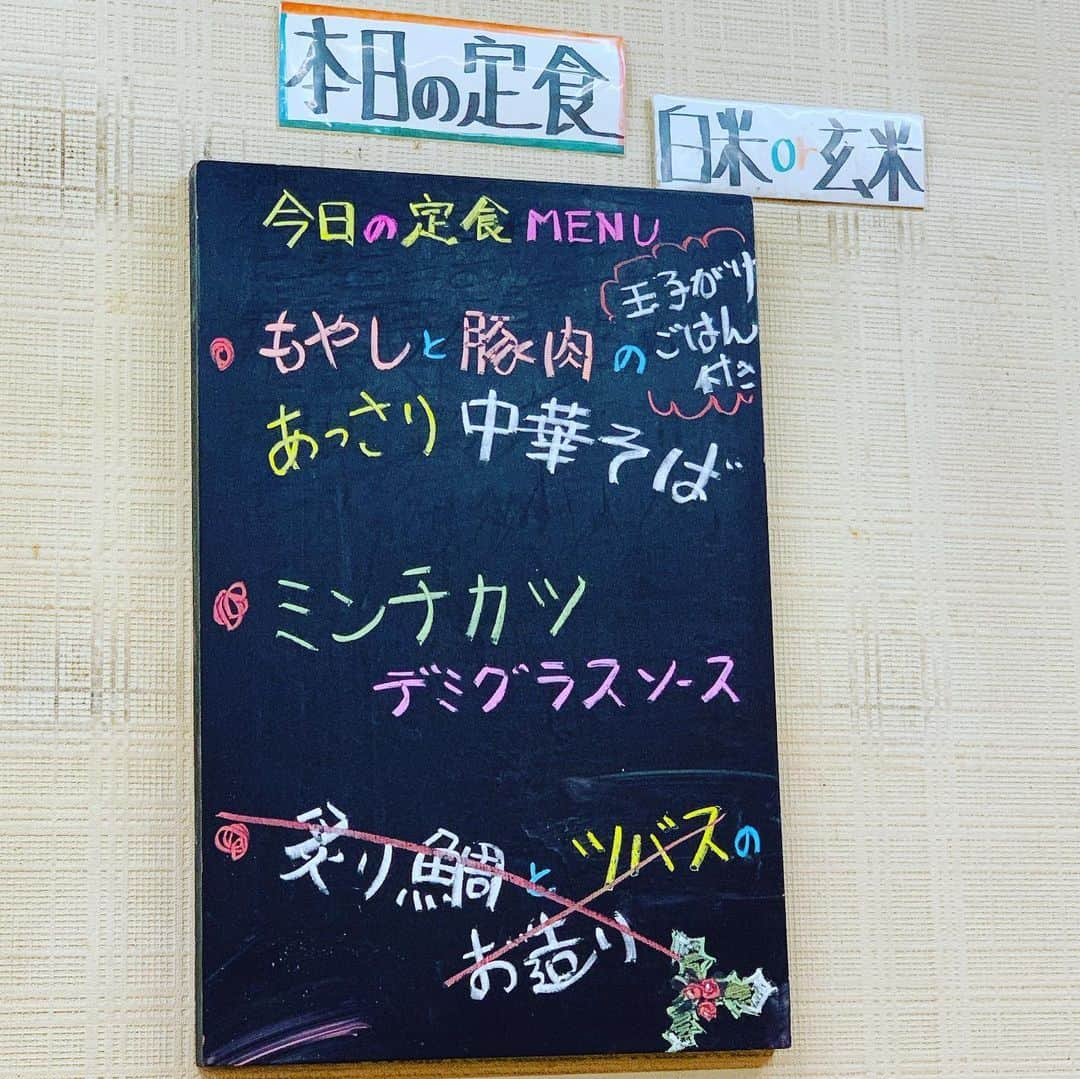 本日の定食
白米or玄米
今日の定食MENU
もやしと豚肉の
あっさり中華そば
玉子がけ
ごはん
付き
ミンチカツ
デミグラスソース
炙り鯛とツバスの
お造り